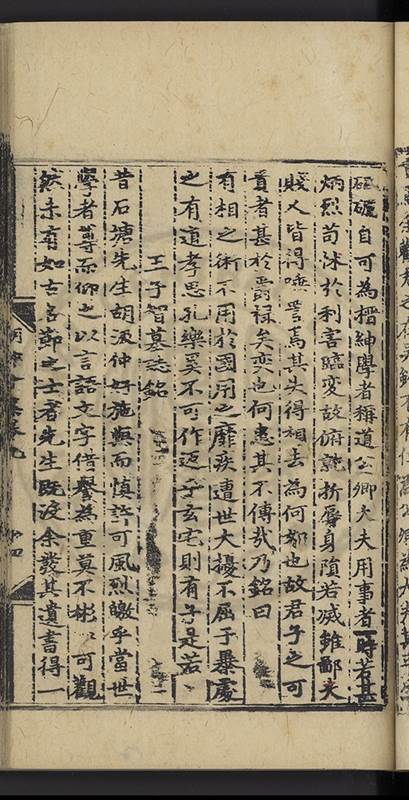 磊磊自可為搢紳學者稱道公卿大夫用事者一時若甚
炳烈苟沭於利害臨變故俯就折辱身隕若烕雖鄙夫
賤人皆得唾詈焉其失得相去為何如也故君子之可
貴者甚於爵祿矣奕也何患其不傳哉乃銘曰
有相之術不用於國用之靡疾遭世大擾不屈于暴處
之有道孝思孔樂奚不可作返乎玄宅則有予是若
王子智墓誌銘
昔石塘先生胡汲仲好施與而慎許可風烈皦乎當世
學者蓴而仰之以言語文字借譽為重莫不彬彬可觀
然未有如古名節之士君先生既沒余裒其遺書得一